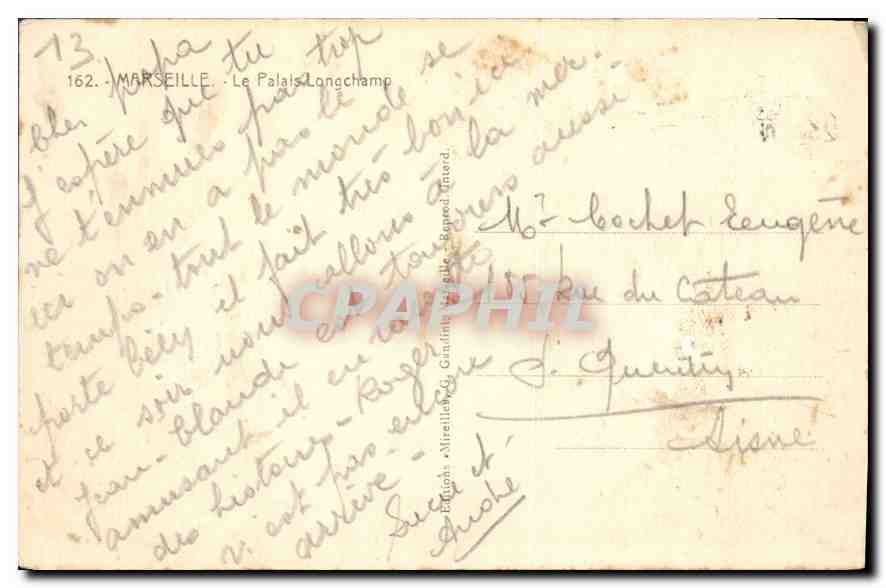 13
162. - MARSEILLE. - Le Palais Longchamp
Cher papa
J'espère que tu
ne t'ennuies pas trop
ici on en a pas le
temps - tout le monde se
porte bien il fait très bon ici
et ce soir nous allons à la mer.
Jean-Claude est toujours aussi
amusant il en raconte
des histoires - Roger
n'est pas encore
arrivé -
Lucie et
André
Editions «Mireille», G. Gandini, Marseille - Reprod. Interd.
CPAPHIL
Mr Cochet Eeugène
155 Rue du Cateau
St Quentin
Aisne